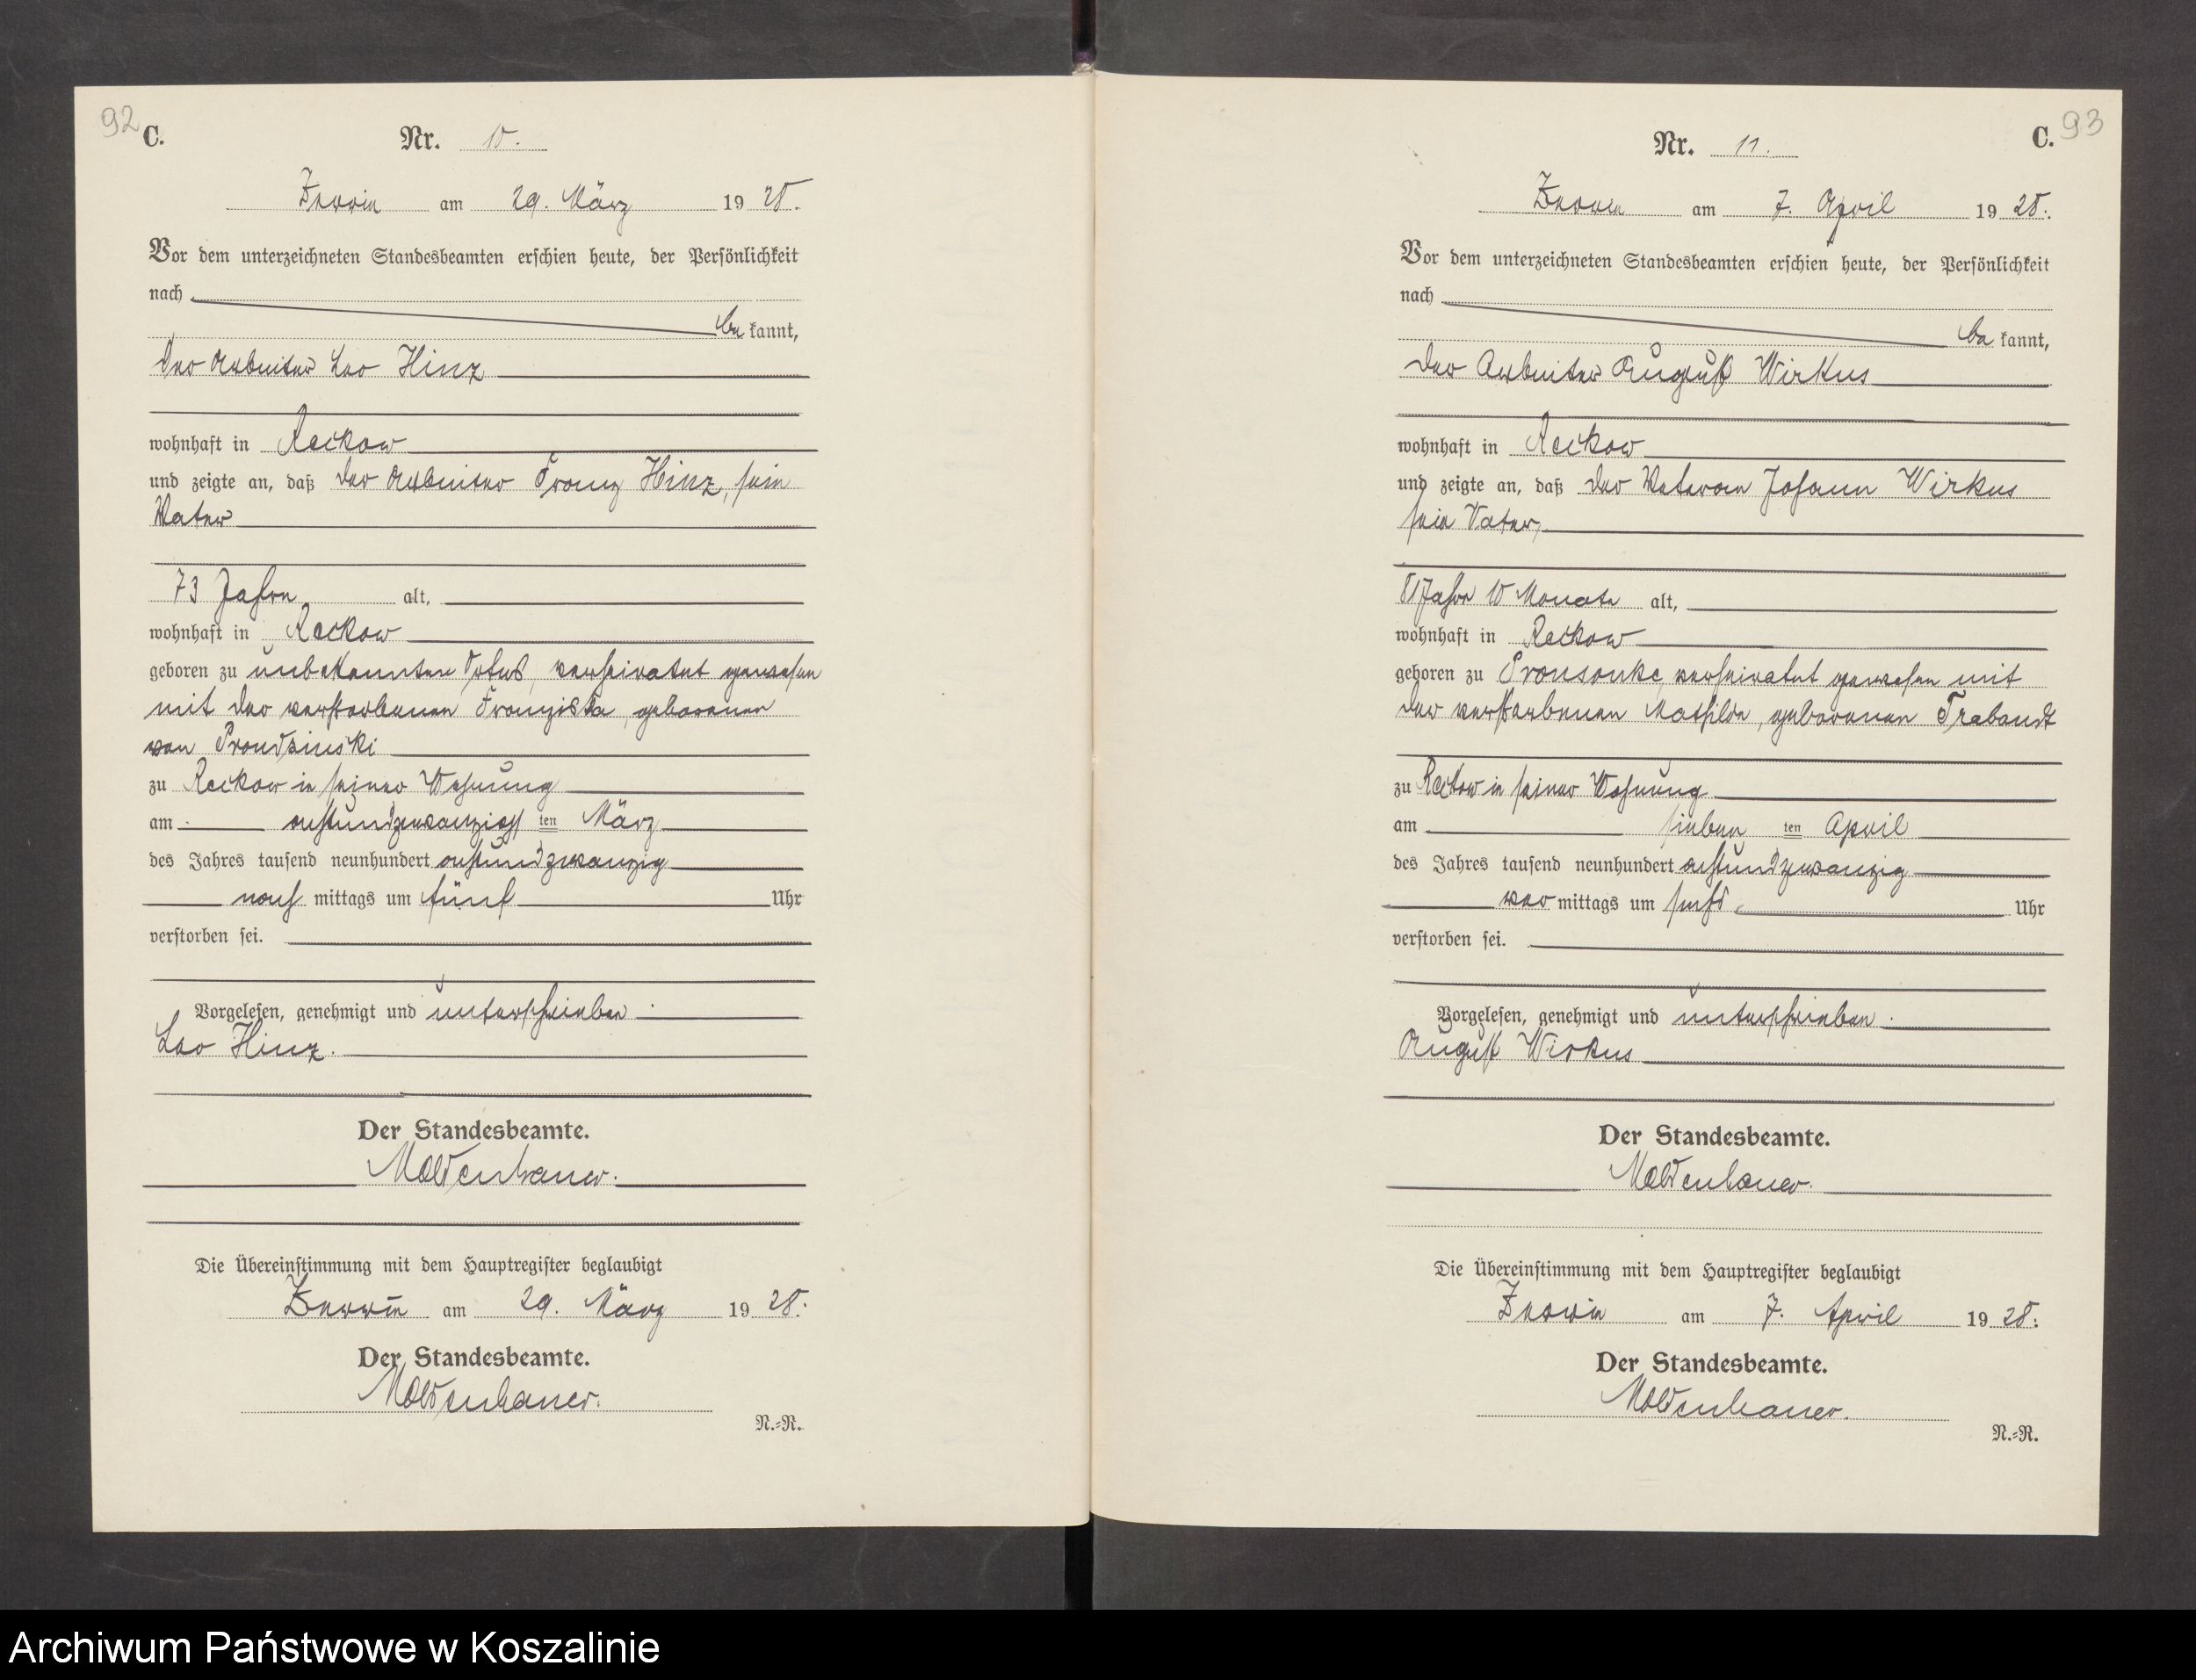 92
C.
Nr. 10.
Zerrin am 29. März 1928.
Vor dem unterzeichneten Standesbeamten erschien heute, der Persönlichkeit
nach
be kannt,
der Arbeiter Leo Hinz
wohnhaft in Reckow
und zeigte an, daß der Arbeiter Franz Hinz, sein
Vater
73 Jahre alt,
wohnhaft in Reckow
geboren zu unbekannten Orts, verheiratet gewesen
mit der verstorbenen Franziska, geborenen
von Prondzinski
zu Reckow in seiner Wohnung
am achtundzwanzigsten März
des Jahres tausend neunhundert achtundzwanzig
nach mittags um fünf Uhr
verstorben sei.
Vorgelesen, genehmigt und unterschrieben.
Leo Hinz.
Der Standesbeamte.
Moldenhauer.
Die Übereinstimmung mit dem Hauptregister beglaubigt
Zerrin am 29. März 1928.
Der Standesbeamte.
Moldenhauer.
N.=R.
93
C.
Nr. 11.
Zerrin am 7. April 1928.
Vor dem unterzeichneten Standesbeamten erschien heute, der Persönlichkeit
nach
be kannt,
der Arbeiter August Wirkus
wohnhaft in Reckow
und zeigte an, daß der Veteran Johann Wirkus
sein Vater,
81 Jahre 10 Monate alt,
wohnhaft in Reckow
geboren zu Pronsonke, verheiratet gewesen mit
der verstorbenen Mathilde, geborenen Trabandt
zu Reckow in seiner Wohnung
am sieben ten April
des Jahres tausend neunhundert achtundzwanzig
vor mittags um sechs Uhr
verstorben sei.
Vorgelesen, genehmigt und unterschrieben.
August Wirkus
Der Standesbeamte.
Moldenhauer.
Die Übereinstimmung mit dem Hauptregister beglaubigt
Zerrin am 7. April 1928.
Der Standesbeamte.
Moldenhauer.
N.=R.
Archiwum Państwowe w Koszalinie